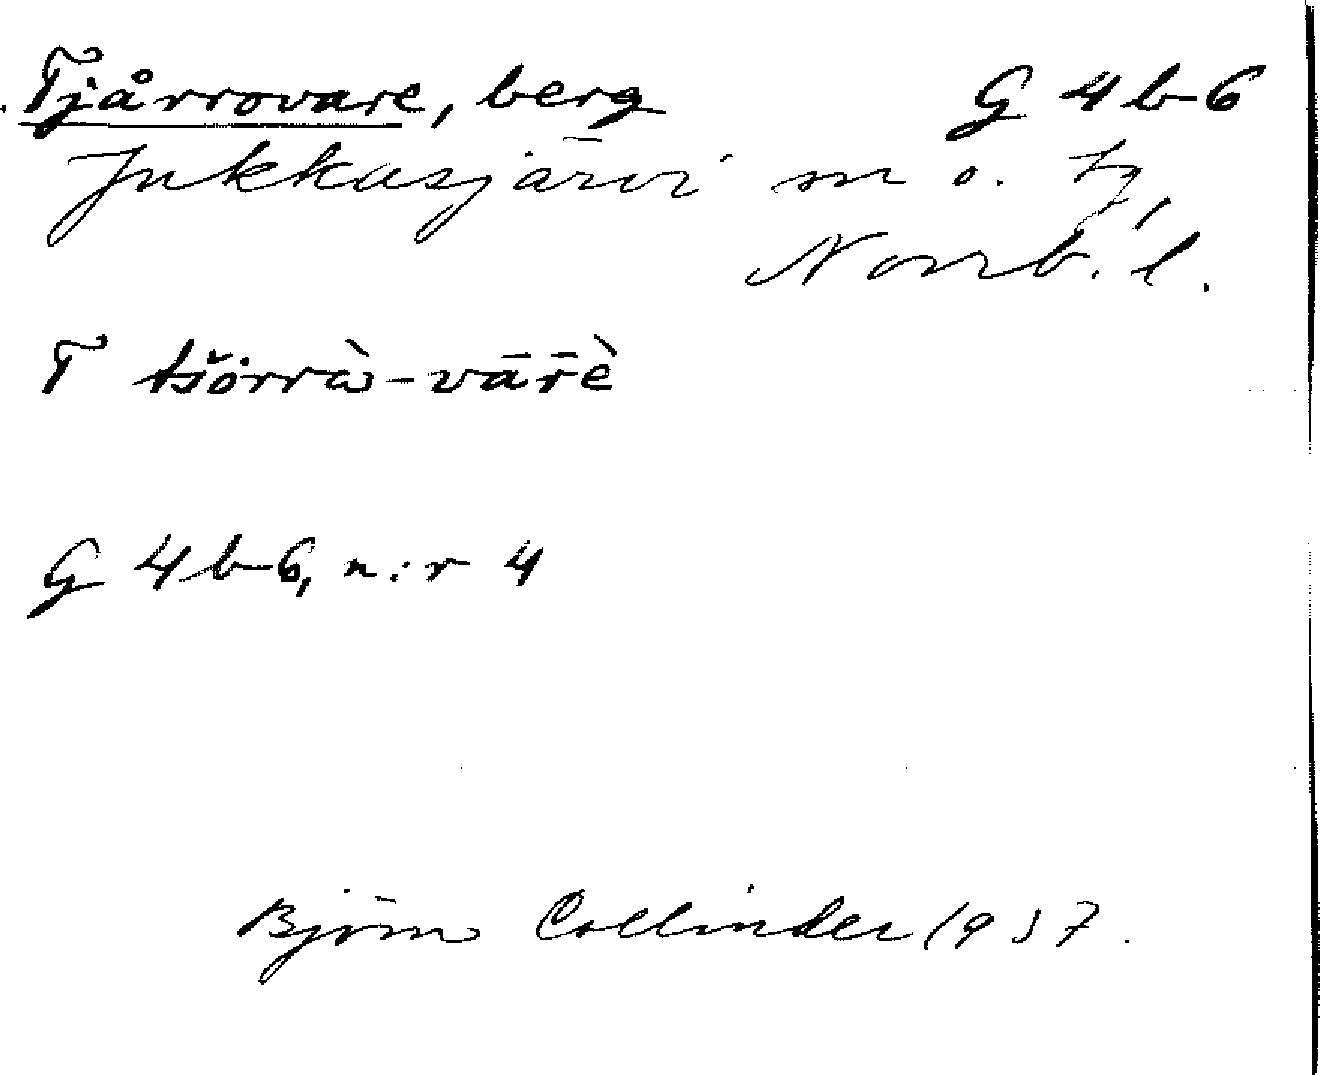 Tjårrovare, berg G 4 b-6
Jukkasjärvi sn o. tg,
Norrb. l.
T tšȯrrà-vārè
G 4 b-6, n:r 4
Björn Collinder 1937.